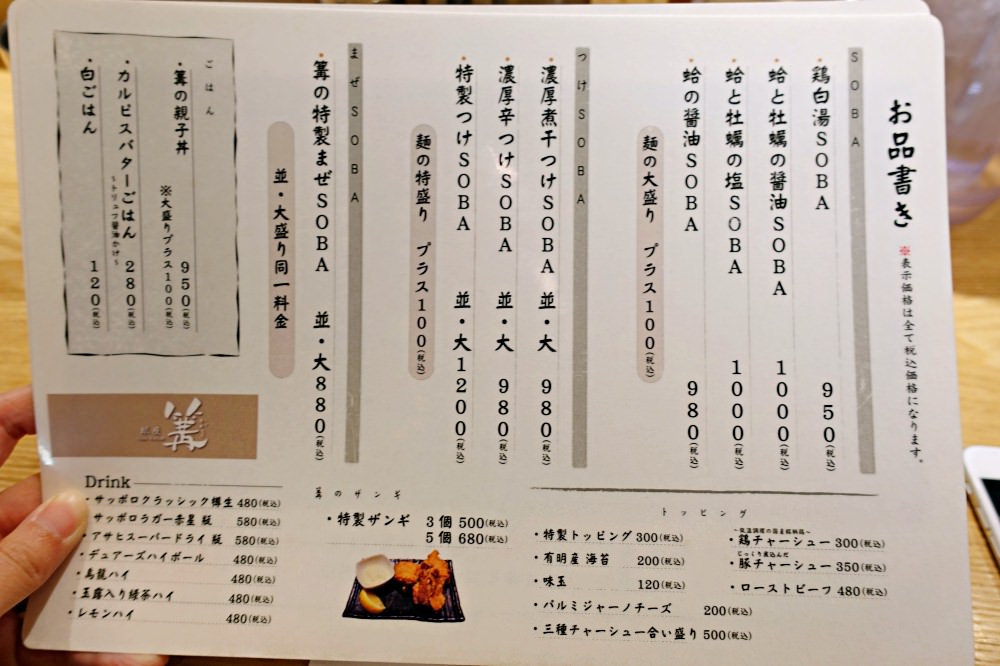 お品書き
※表示価格は全て税込価格になります。
SOBA
・鶏白湯SOBA 950(税込)
・蛤と牡蠣の醤油SOBA 1000(税込)
・蛤と牡蠣の塩SOBA 1000(税込)
・蛤の醤油SOBA 980(税込)
麺の大盛り プラス100(税込)
つけSOBA
・濃厚煮干つけSOBA 並・大 980(税込)
・濃厚辛つけSOBA 並・大 980(税込)
・特製つけSOBA 並・大 1200(税込)
麺の特盛り プラス100(税込)
まぜSOBA
・篝の特製まぜSOBA 並・大 880(税込)
並・大盛り同一料金
ごはん
・篝の親子丼 950(税込)
※大盛りプラス100(税込)
・カルピスバターごはん 280(税込)
~トリュフ醤油かけ~
・白ごはん 120(税込)
篝
Drink
・サッポロクラッシック樽生 480(税込)
・サッポロラガー赤星 瓶 580(税込)
・アサヒスーパードライ 瓶 580(税込)
・デュアーズハイボール 480(税込)
・烏龍ハイ 480(税込)
・玉露入り緑茶ハイ 480(税込)
・レモンハイ 480(税込)
篝のザンギ
・特製ザンギ 3個 500(税込)
5個 680(税込)
トッピング
・特製トッピング 300(税込)
・有明産 海苔 200(税込)
・味玉 120(税込)
・パルミジャーノチーズ 200(税込)
・三種チャーシュー合い盛り 500(税込)
~低温調理の国産銘柄鶏~
・鶏チャーシュー 300(税込)
じっくり煮込んだ
・豚チャーシュー 350(税込)
・ローストビーフ 480(税込)